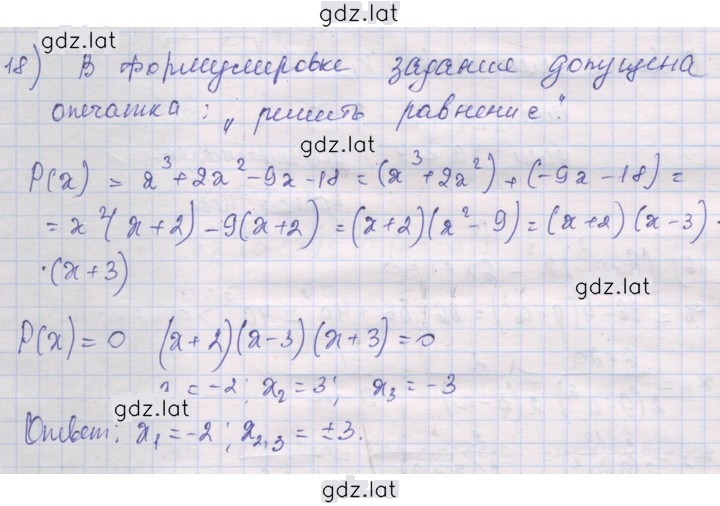 gdz.lat
gdz.lat
18) В формулировке задания допущена
опечатка: „решить равнение".
gdz.lat
P(x) = x³+2x²-9x-18 = (x³+2x²)+(-9x-18) =
= x²(x+2)-9(x+2) = (x+2)(x²-9) = (x+2)(x-3)·
·(x+3)
gdz.lat
P(x) = 0 (x+2)(x-3)(x+3) = 0
= -2; x₂ = 3; x₃ = -3
gdz.lat
Ответ: x₁ = -2; x₂,₃ = ±3.
gdz.lat